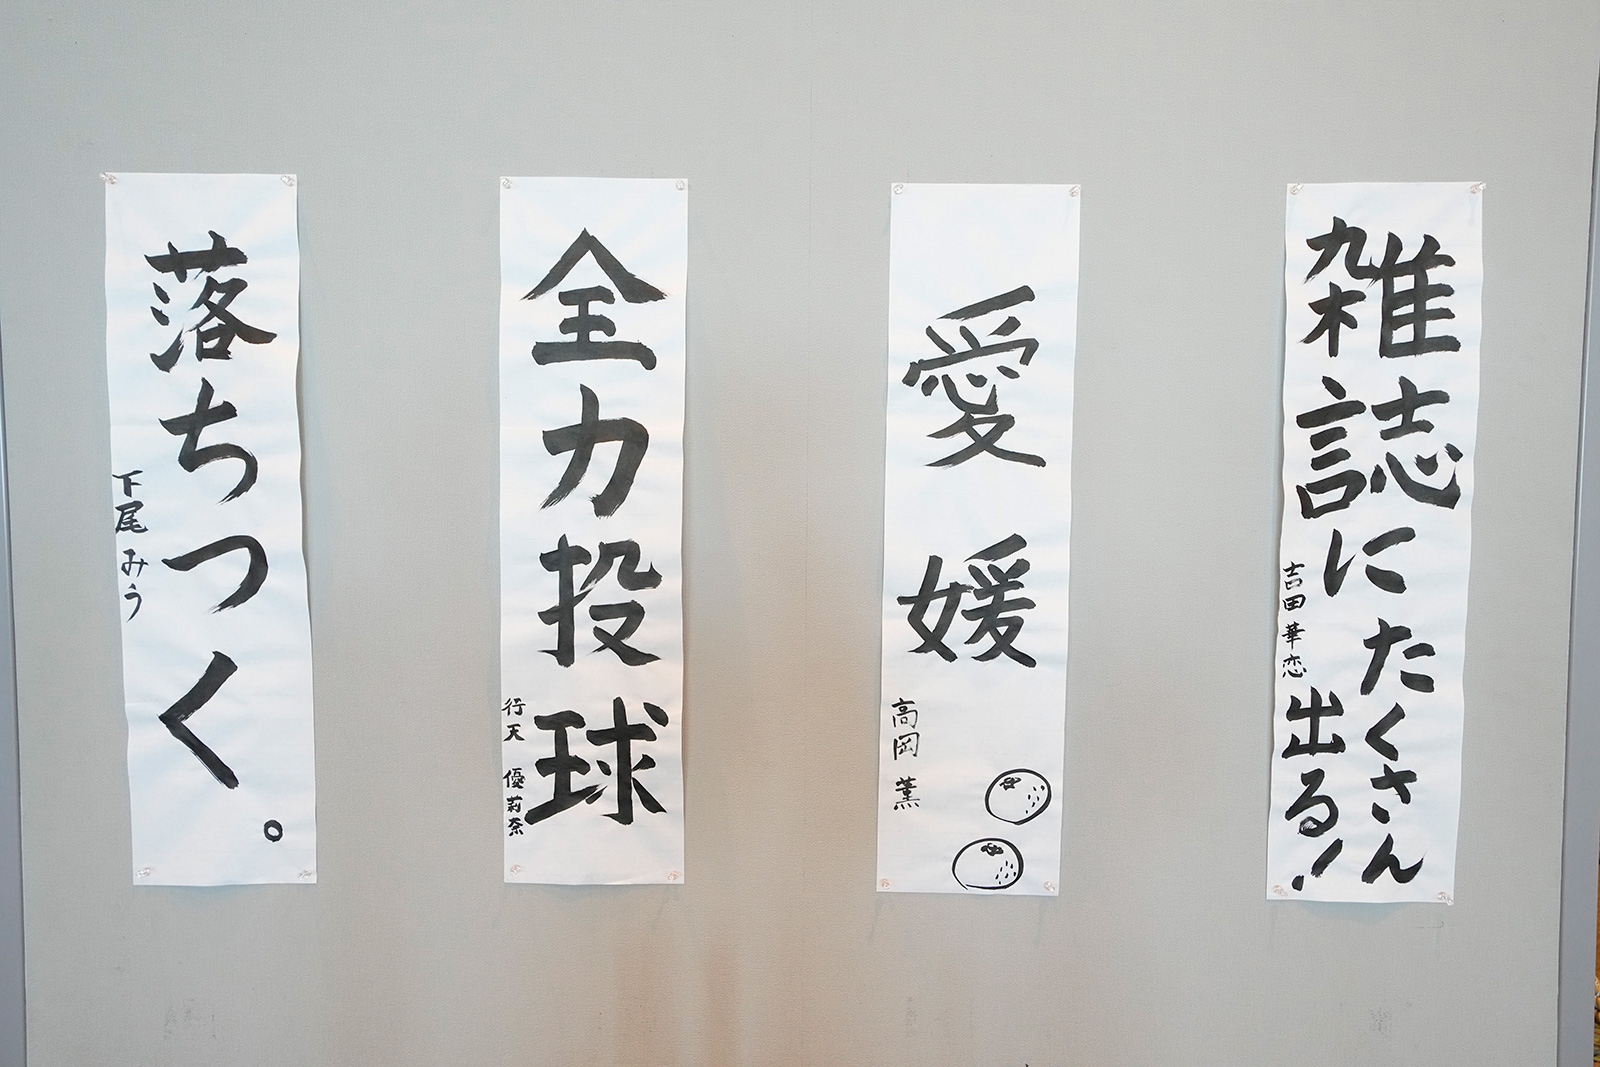 雑誌にたくさん
出る!
吉田華恋
愛媛
高岡薫
全力投球
行天優莉奈
落ちつく。
下尾みう